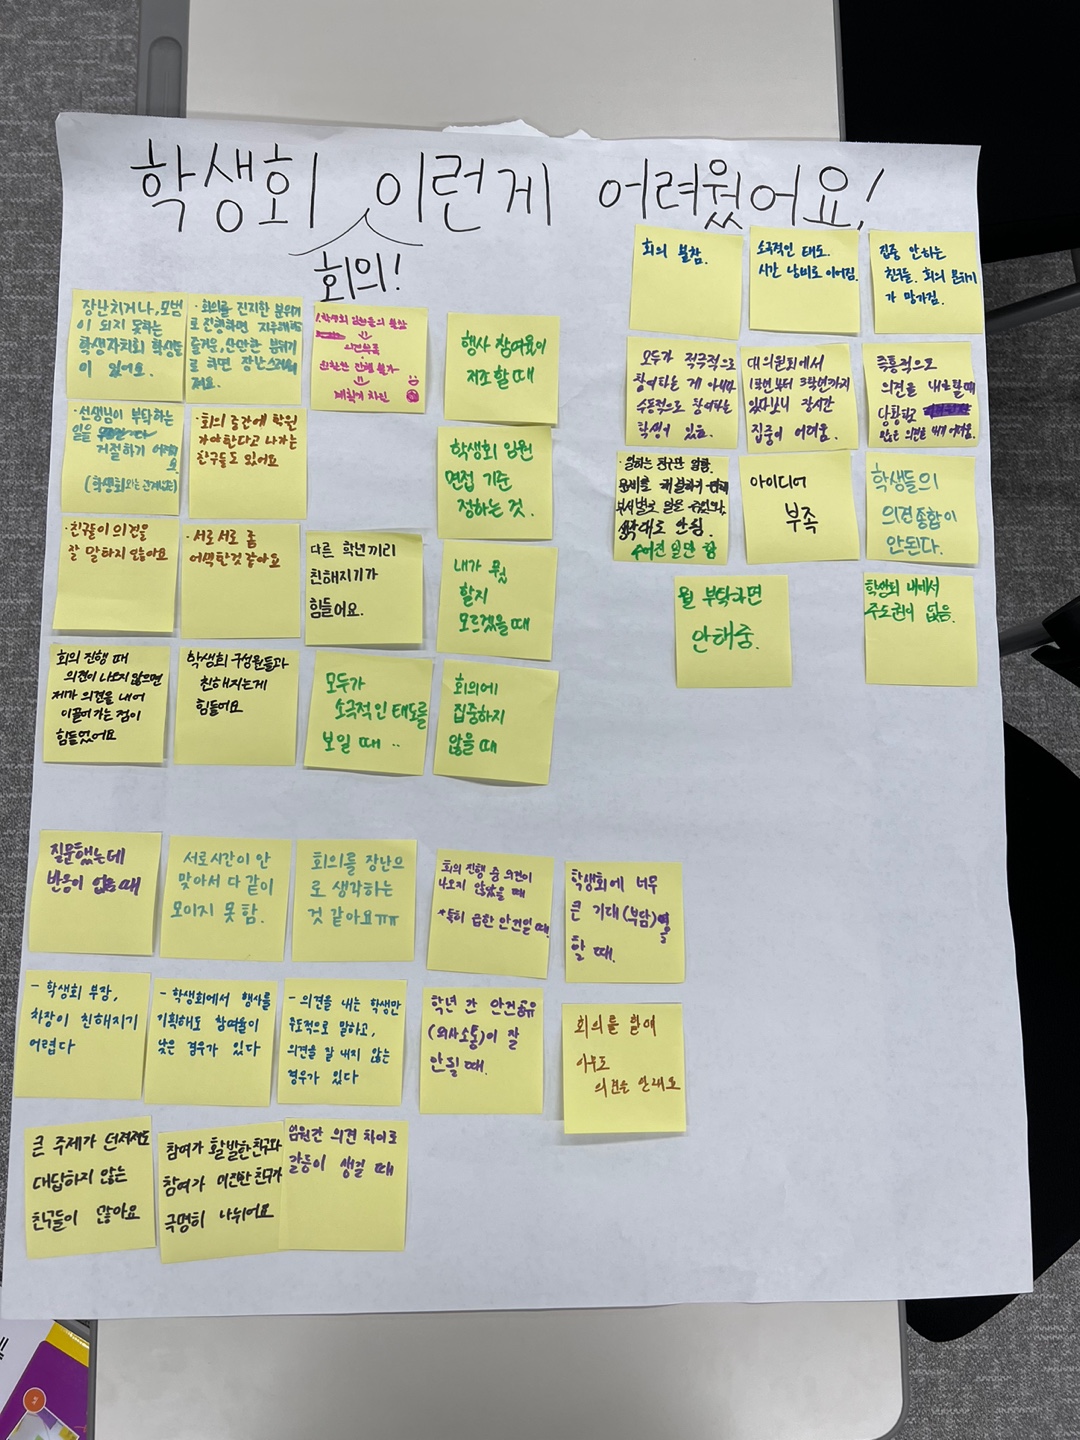 학생회 이런게 어려웠어요!
회의!
장난치거나, 모범
이 되지 못하는
학생자치회 학생들
이 있어요.
·회의를 진지한 분위기
로 진행하면 지루해하고
즐거운, 산만한 분위기
로 하면 장난스러워
져요.
의견부족
원활한 진행 불가
계획에 차질
행사 참여율이
저조할 때
회의 불참.
소극적인 태도.
시간 낭비로 이어짐.
집중 안하는
친구들. 회의 분위기
가 망가짐.
·선생님이 부탁하는
일을
거절하기 어려워
요
·회의 중간에 학원
가야한다고 나가는
친구들도 있어요
학생회 임원
면접 기준
정하는 것.
모두가 적극적으로
참여하는 게 아니라
수동적으로 참여하는
학생이 있음.
대의원회에서
1학년부터 3학년까지
있다보니 장시간
집중이 어려움.
즉흥적으로
의견을 내야할 때
당황하고
좋은 의견을 내기 어려움.
·친구들이 의견을
잘 말하지 않아요
·서로서로 좀
어색한것 같아요
다른 학년끼리
친해지기가
힘들어요.
내가 뭘
할지
모르겠을 때
·일하는 친구만 일함.
생각대로 안됨.
아이디어
부족
학생들의
의견종합이
안된다.
뭘 부탁하면
안해줌.
학생회 내에서
주도권이 없음.
회의 진행 때
의견이 나오지 않으면
제가 의견을 내어
이끌어 가는 점이
힘들었어요
학생회 구성원들과
친해지는게
힘들어요
모두가
소극적인 태도를
보일 때 ..
회의에
집중하지
않을 때
질문했는데
반응이 없을 때
서로시간이 안
맞아서 다 같이
모이지 못 함.
회의를 장난으
로 생각하는
것 같아요ㅠㅠ
회의 진행 중 의견이
나오지 않았을 때
*특히 급한 안건일 때!
학생회에 너무
큰 기대(부담)을
할 때.
- 학생회 부장,
차장이 친해지기
어렵다
- 학생회에서 행사를
기획해도 참여율이
낮은 경우가 있다
- 의견을 내는 학생만
주도적으로 말하고,
의견을 잘 내지 않는
경우가 있다
학년 간 안건공유
(의사소통)이 잘
안될 때.
회의를 할때
아무도
의견을 안내요
큰 주제가 던져져도
대답하지 않는
친구들이 많아요
참여가 활발한 친구와
참여가 미진한 친구가
극명히 나뉘어요
임원간 의견 차이로
갈등이 생길 때